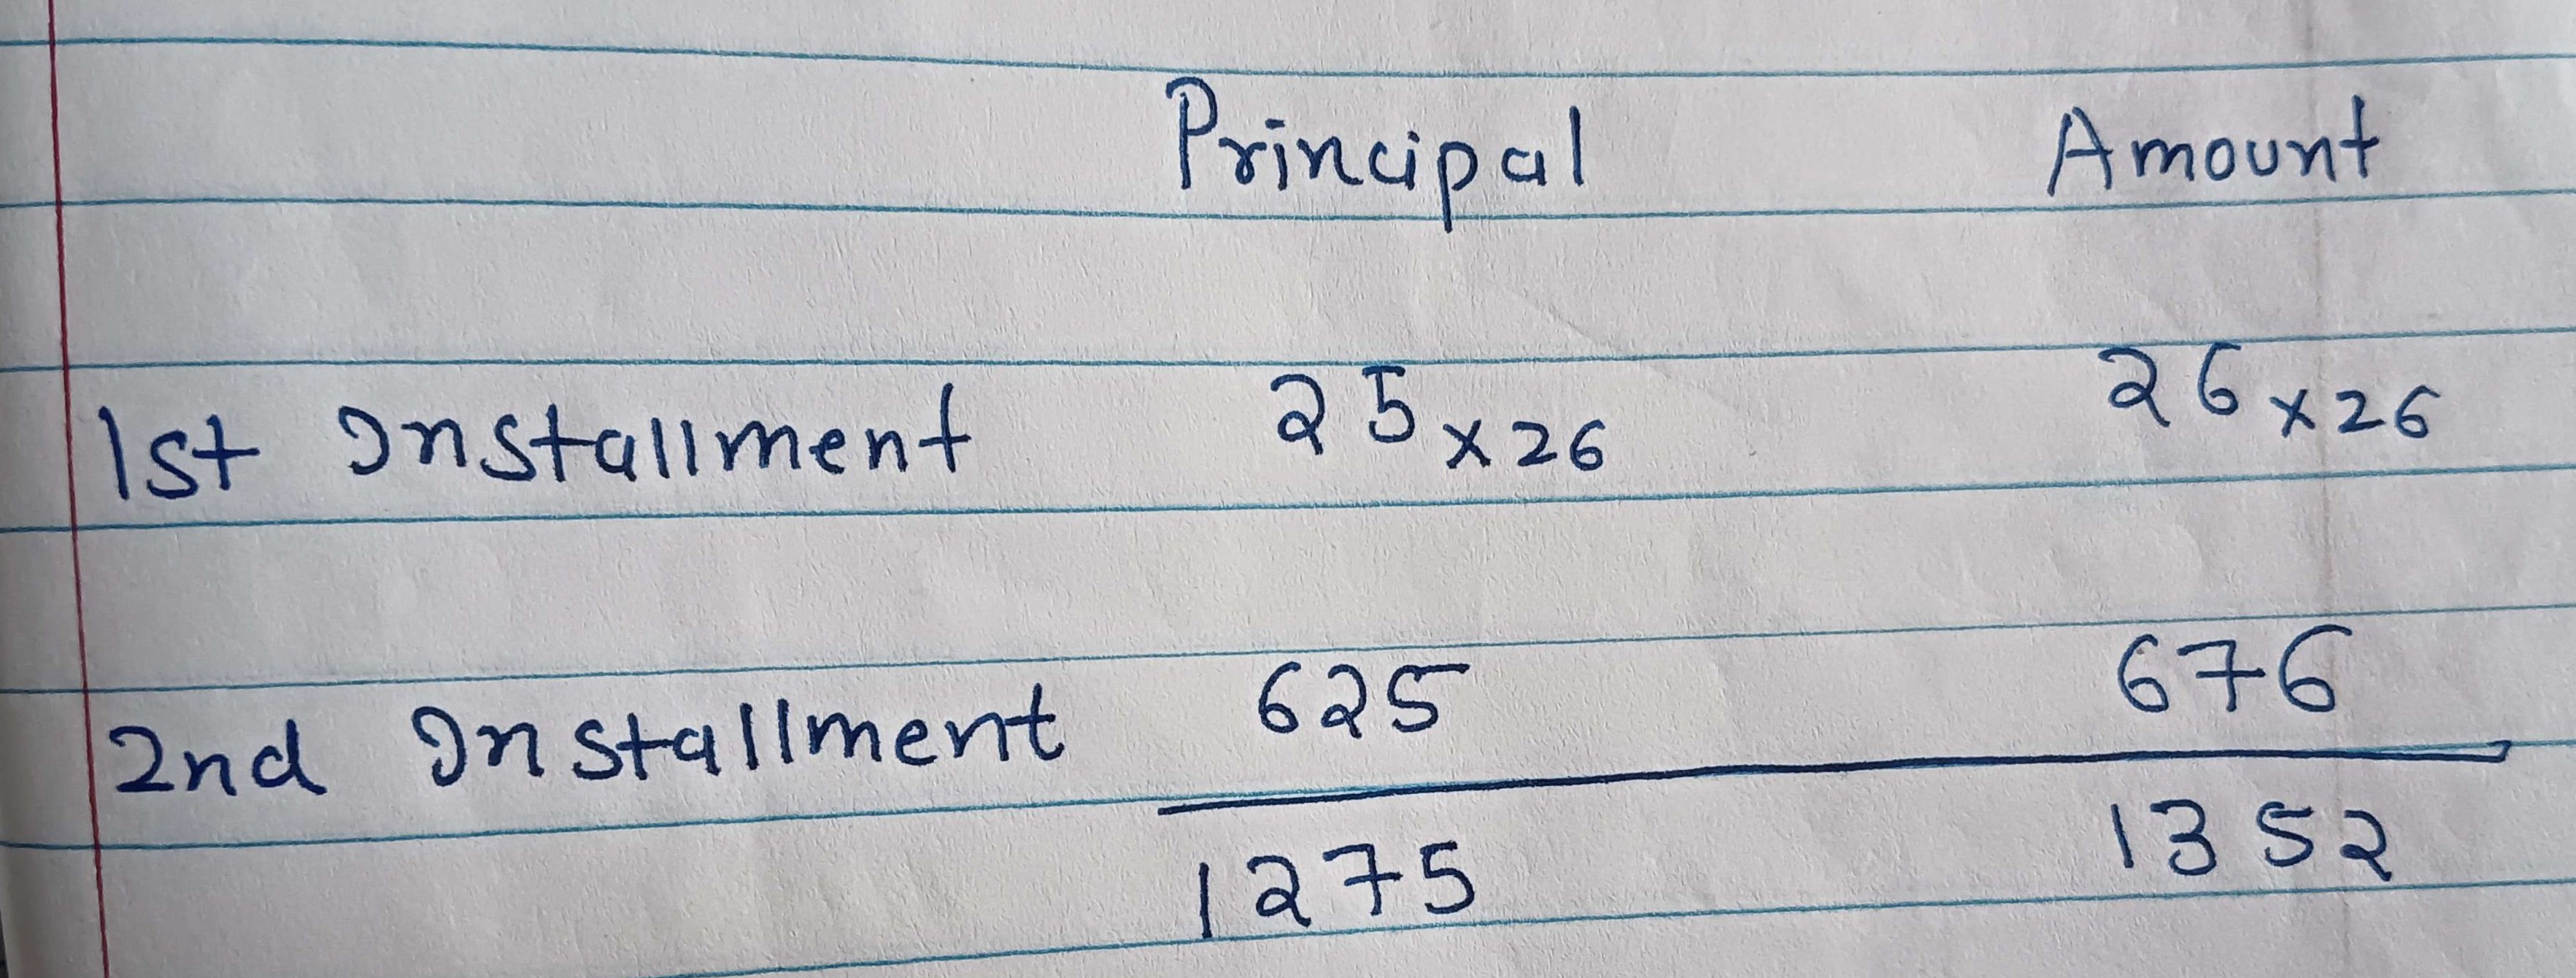 Principal Amount
1st Installment 25 x 26 26 x 26
2nd Installment 625 676
1275 1352